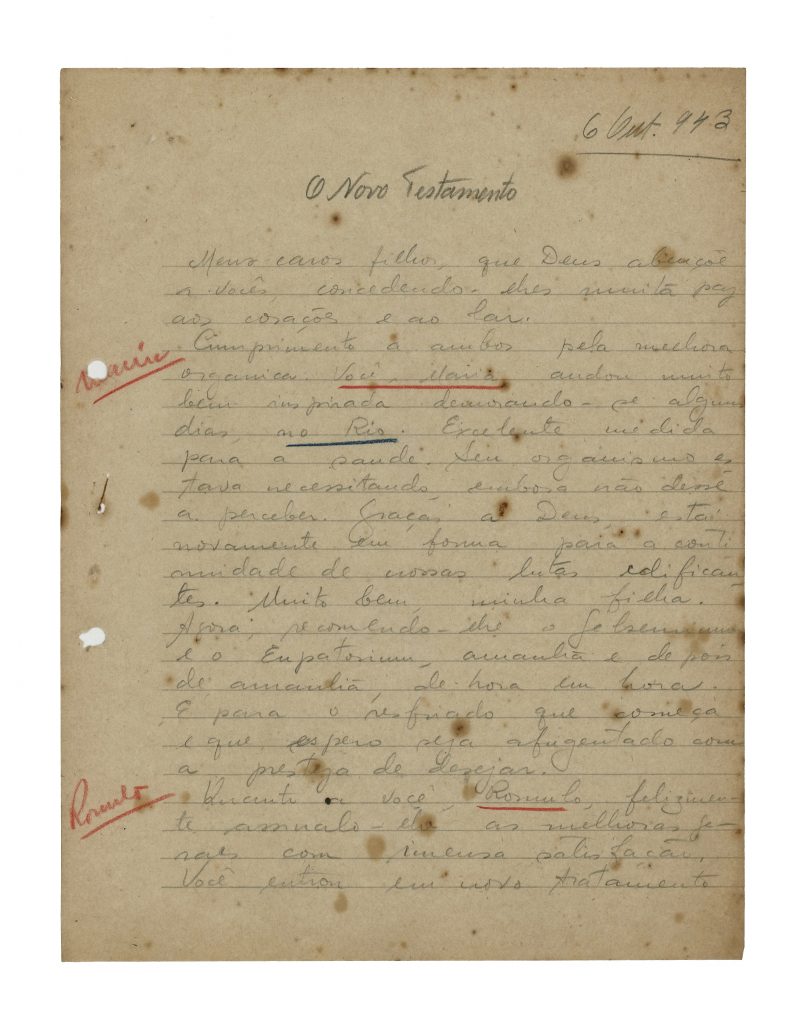 6 Out. 943
O Novo Testamento
Meus caros filhos, que Deus abençôe
a vocês, concedendo-lhes muita paz
aos corações e ao lar.
Cumprimento a ambos pela melhora
Maria
organica. Você, Maria, andou muito
bem inspirada demorando-se alguns
dias, no Rio. Excelente medida
para a saude. Seu organismo es
tava necessitando, embora não désse
a perceber. Graças a Deus, está
novamente em forma para a conti
nuidade de nossas lutas edifican
tes. Muito bem, minha filha.
Agora, recomendo-lhe o Gelsemium
e o Eupatorium, amanhã e depois
de amanhã, de hora em hora.
É para o resfriado que começa
e que espero seja afugentado com
a presteza de desejar.
Romulo
Quanto a você, Romulo, felizmen-
te assinalo-lhe as melhoras ge-
raes com imensa satisfação.
Você entrou em novo tratamento